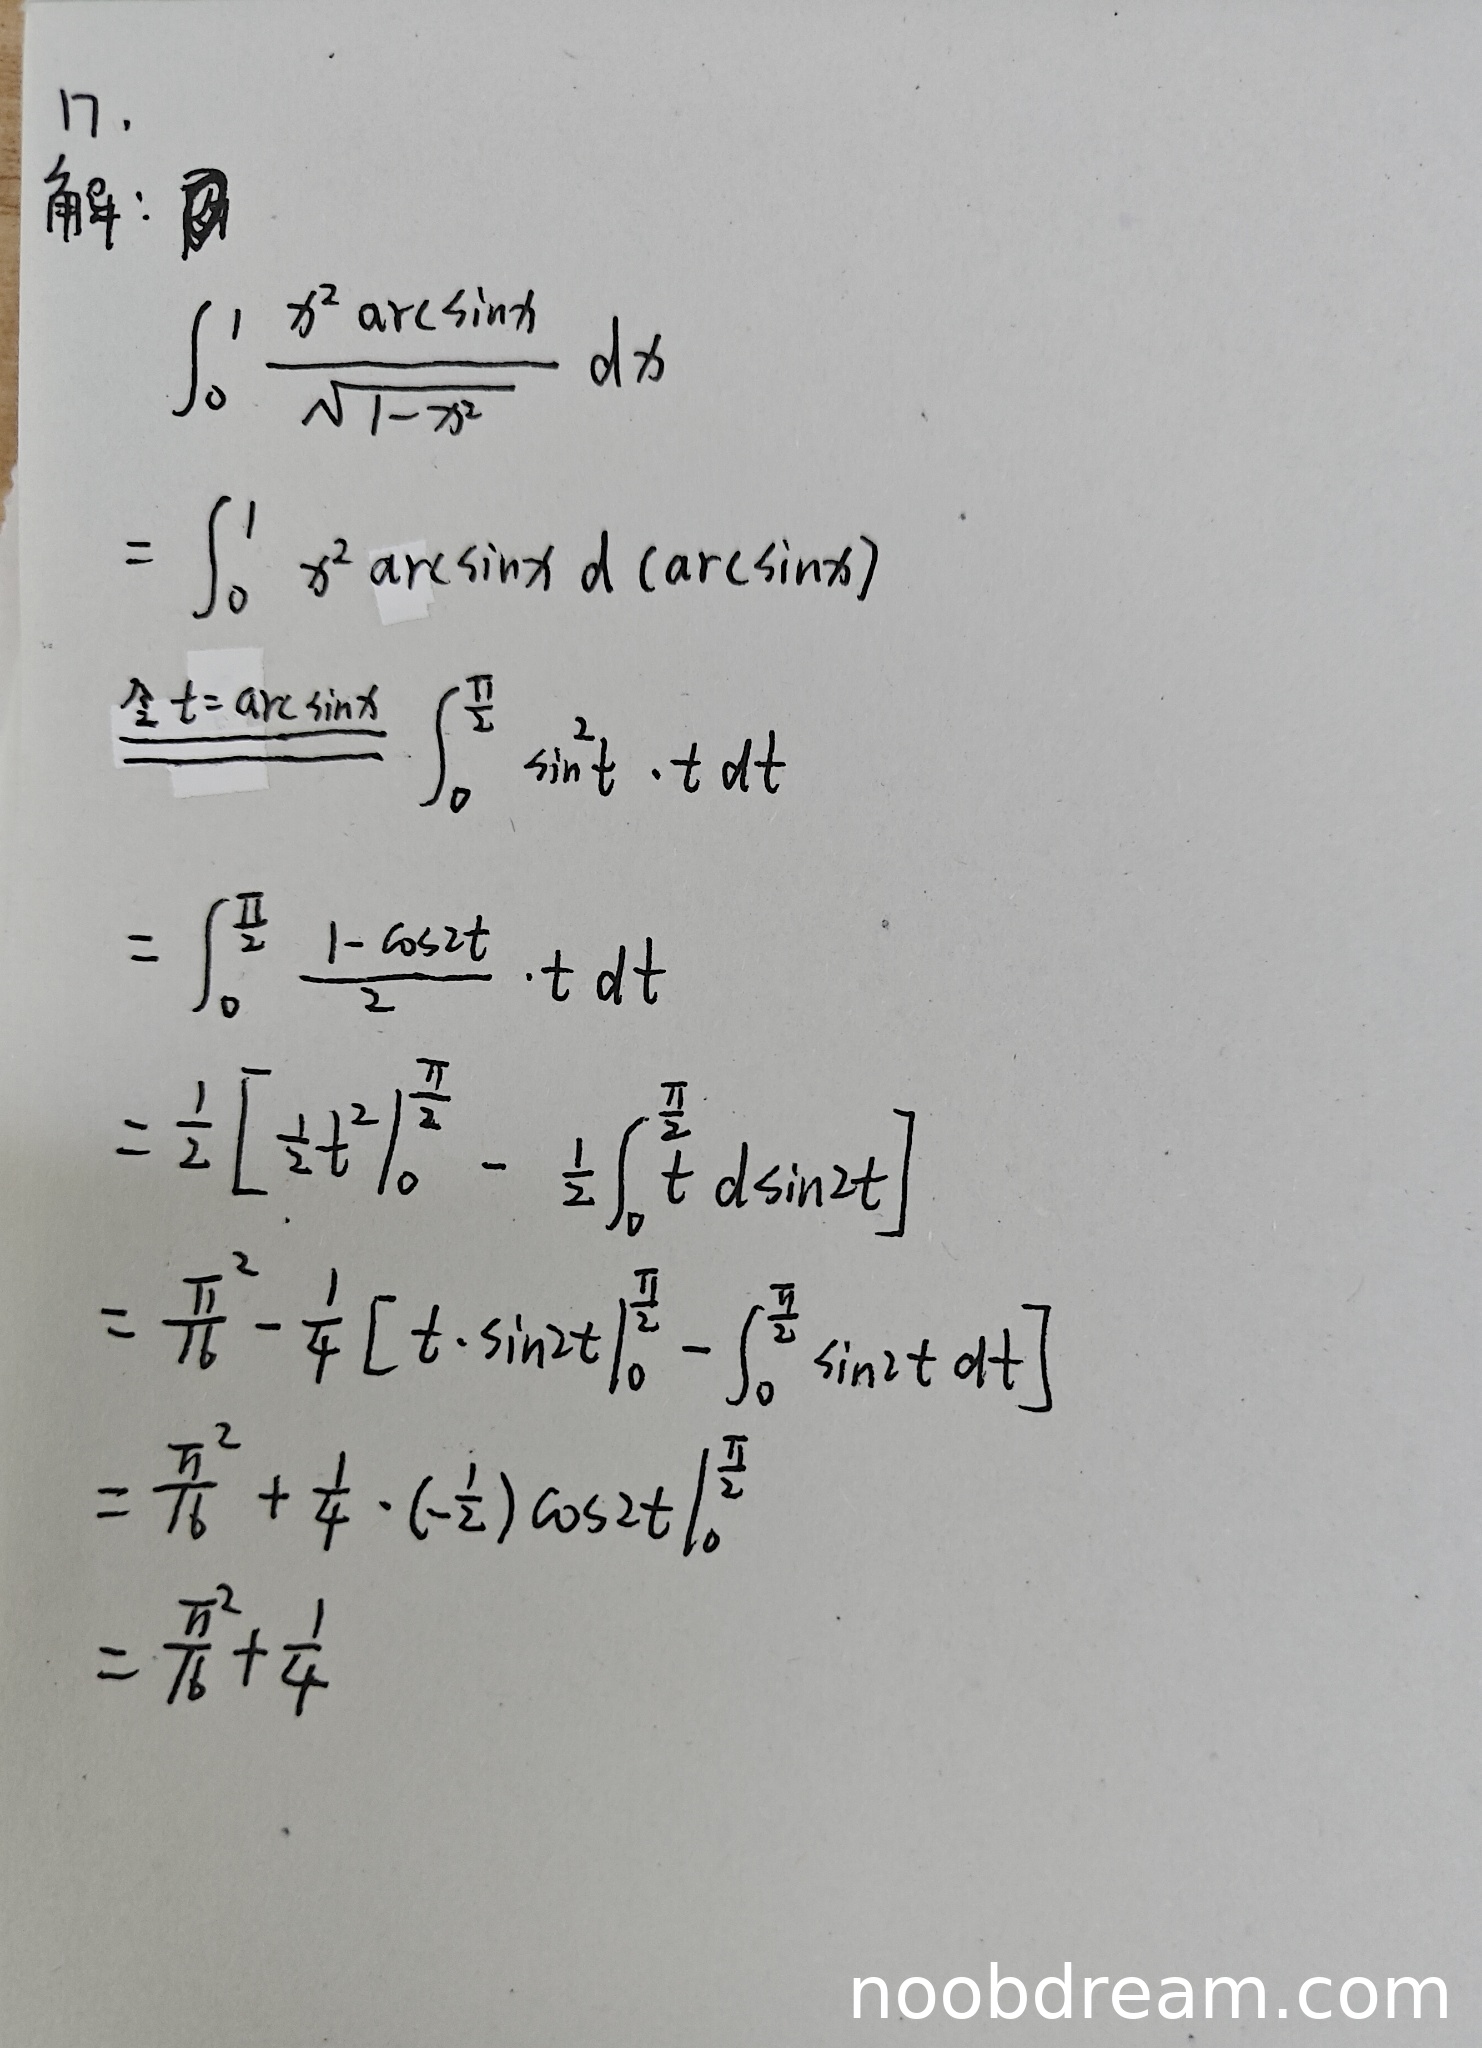 17.
解:
∫₀¹ x² arcsinx / √(1-x²) dx
= ∫₀¹ x² arcsinx d(arcsinx)
令 t=arcsinx ∫₀^(π/2) sin²t · t dt
= ∫₀^(π/2) (1-cos2t)/2 · t dt
= 1/2 [ 1/2 t² |₀^(π/2) - 1/2 ∫₀^(π/2) t dsin2t ]
= π²/16 - 1/4 [ t·sin2t |₀^(π/2) - ∫₀^(π/2) sin2t dt ]
= π²/16 + 1/4 · (-1/2) cos2t |₀^(π/2)
= π²/16 + 1/4
noobdream.com